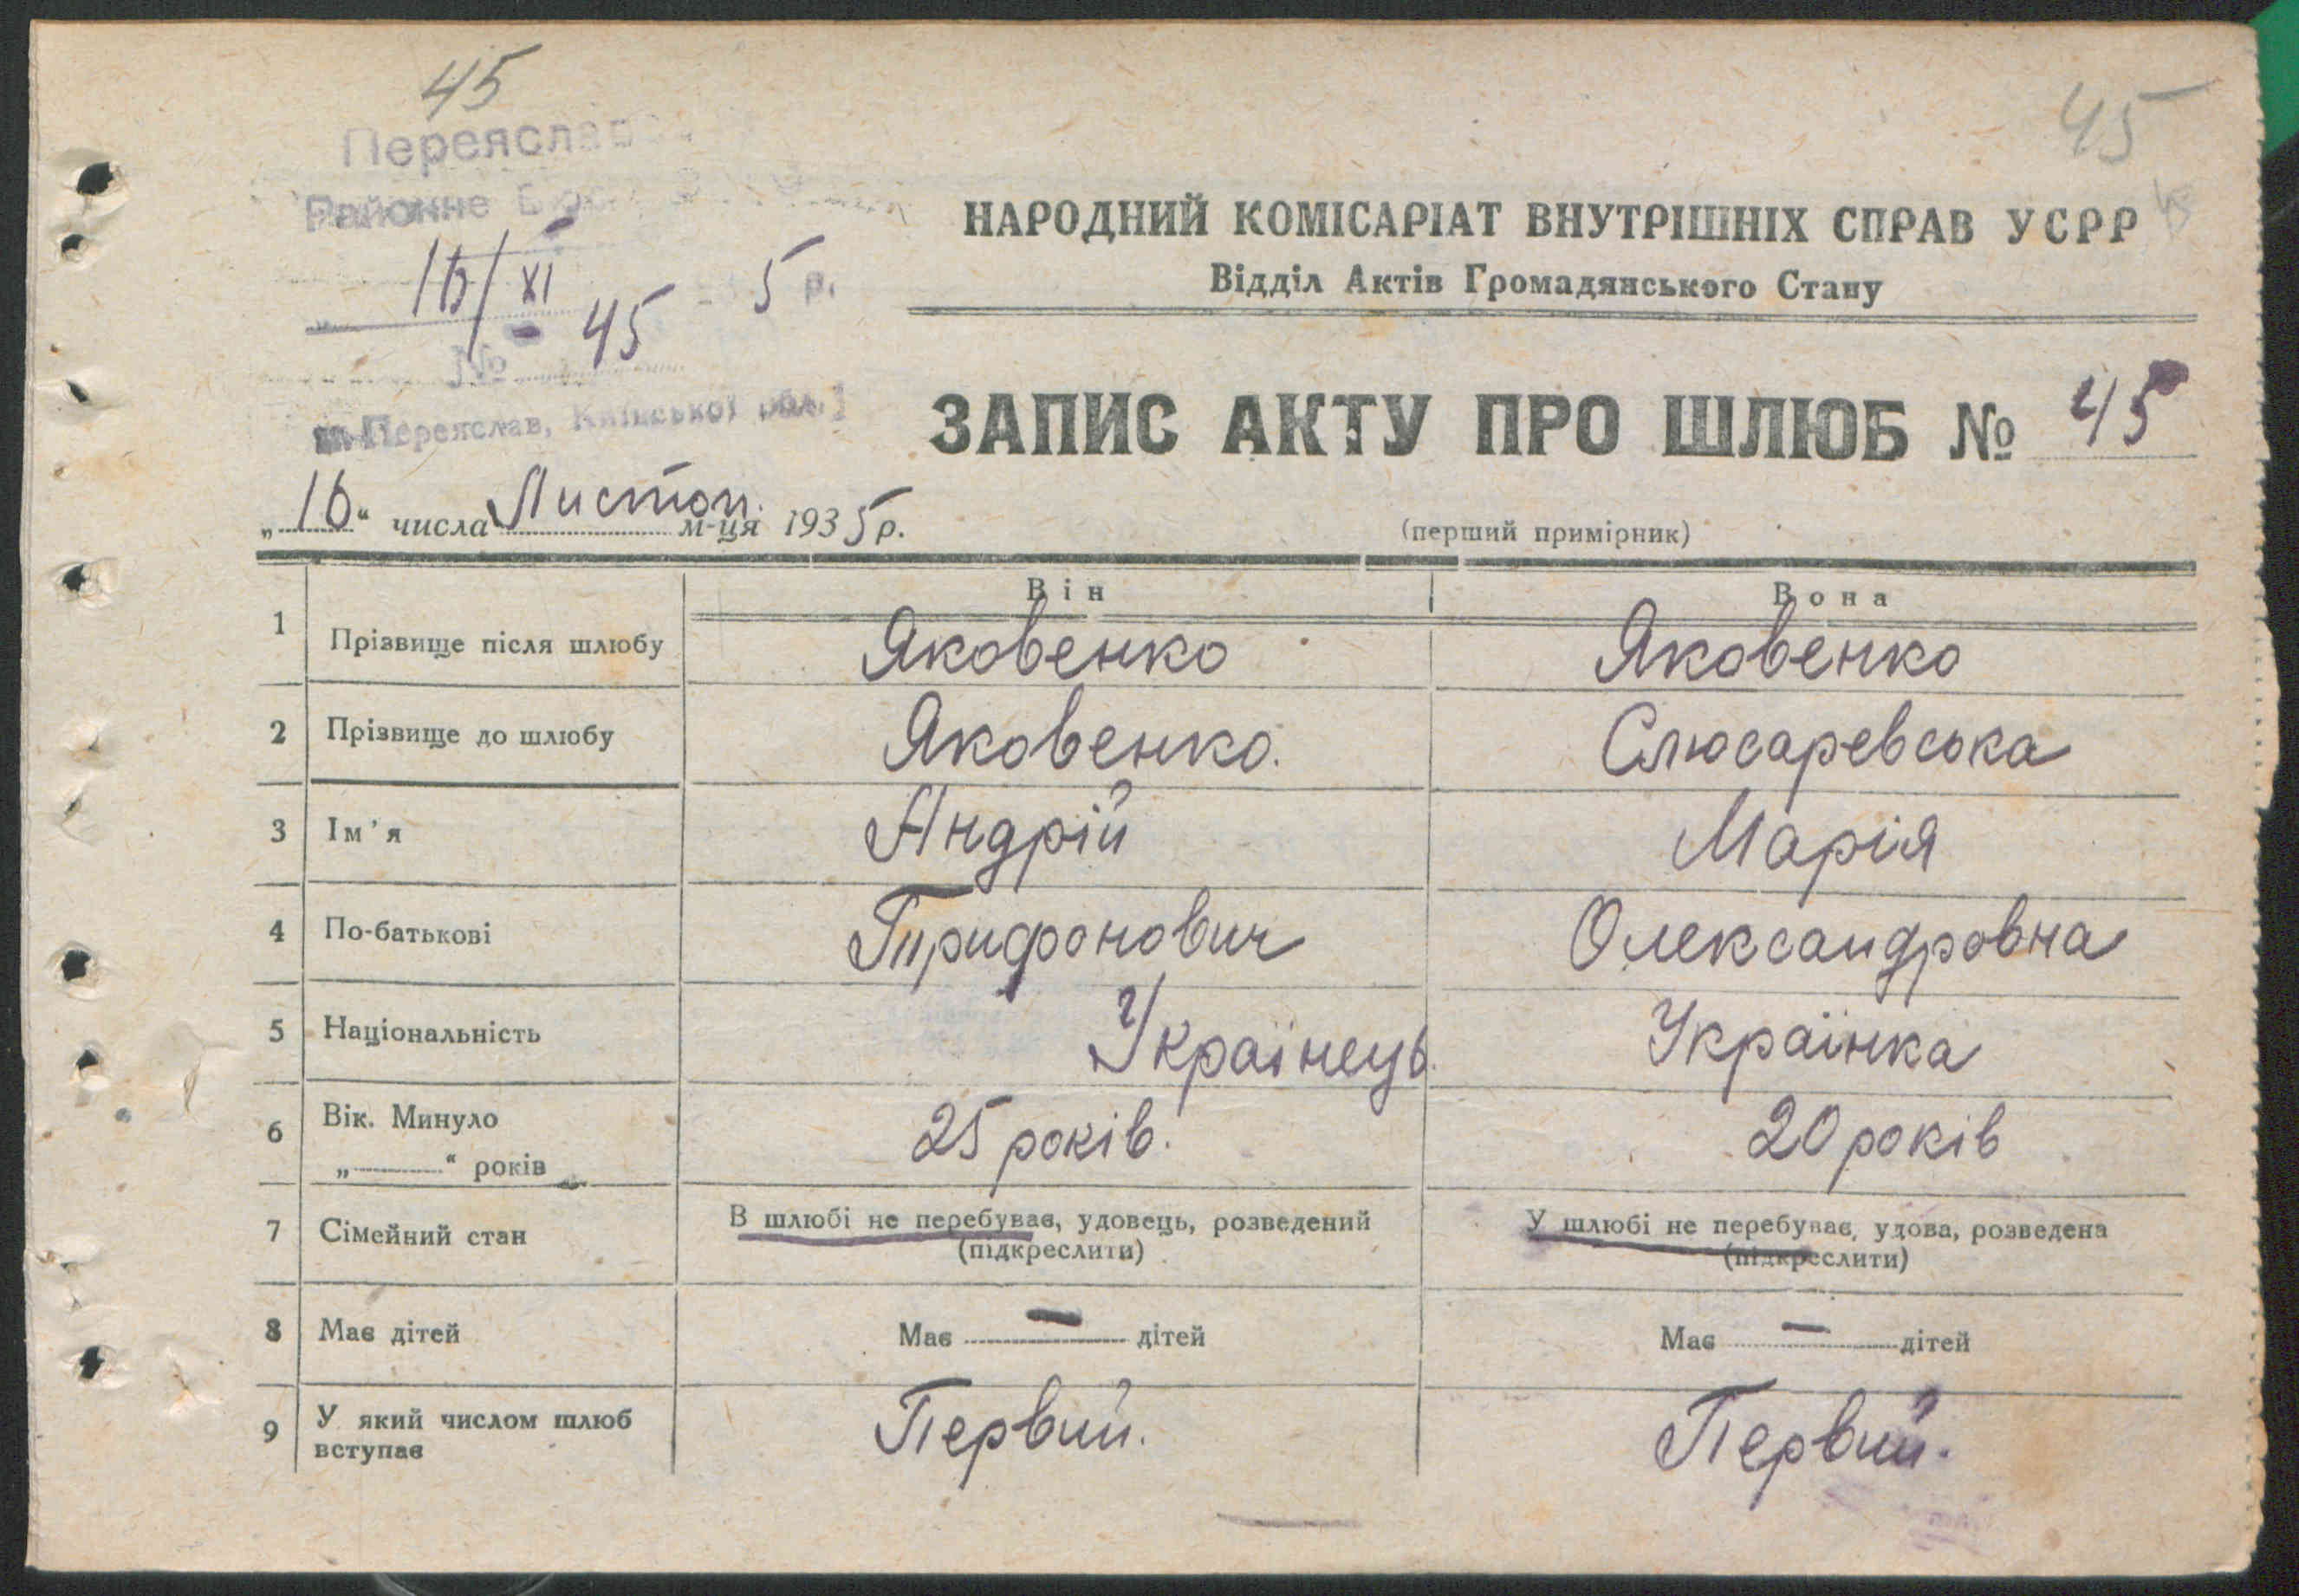 45
45
Переяслав
Районне
НАРОДНИЙ КОМІСАРІАТ ВНУТРІШНІХ СПРАВ УСРР
Відділ Актів Громадянського Стану
16/XI 5 р.
№ 45
м. Переяслав, Київської обл.
ЗАПИС АКТУ ПРО ШЛЮБ № 45
„16“ числа Листоп. м-ця 1935 р.
(перший примірник)
Він Вона
1 Прізвище після шлюбу Яковенко Яковенко
2 Прізвище до шлюбу Яковенко. Слюсаревська
3 Ім’я Андрій Марія
4 По-батькові Трифонович Олександровна
5 Національність Українець. Українка
6 Вік. Минуло „ “ років 25 років. 20 років
7 Сімейний стан В шлюбі не перебуває, удовець, розведений (підкреслити) У шлюбі не перебуває, удова, розведена (підкреслити)
8 Має дітей Має — дітей Має — дітей
9 У який числом шлюб вступає Первий. Первий.